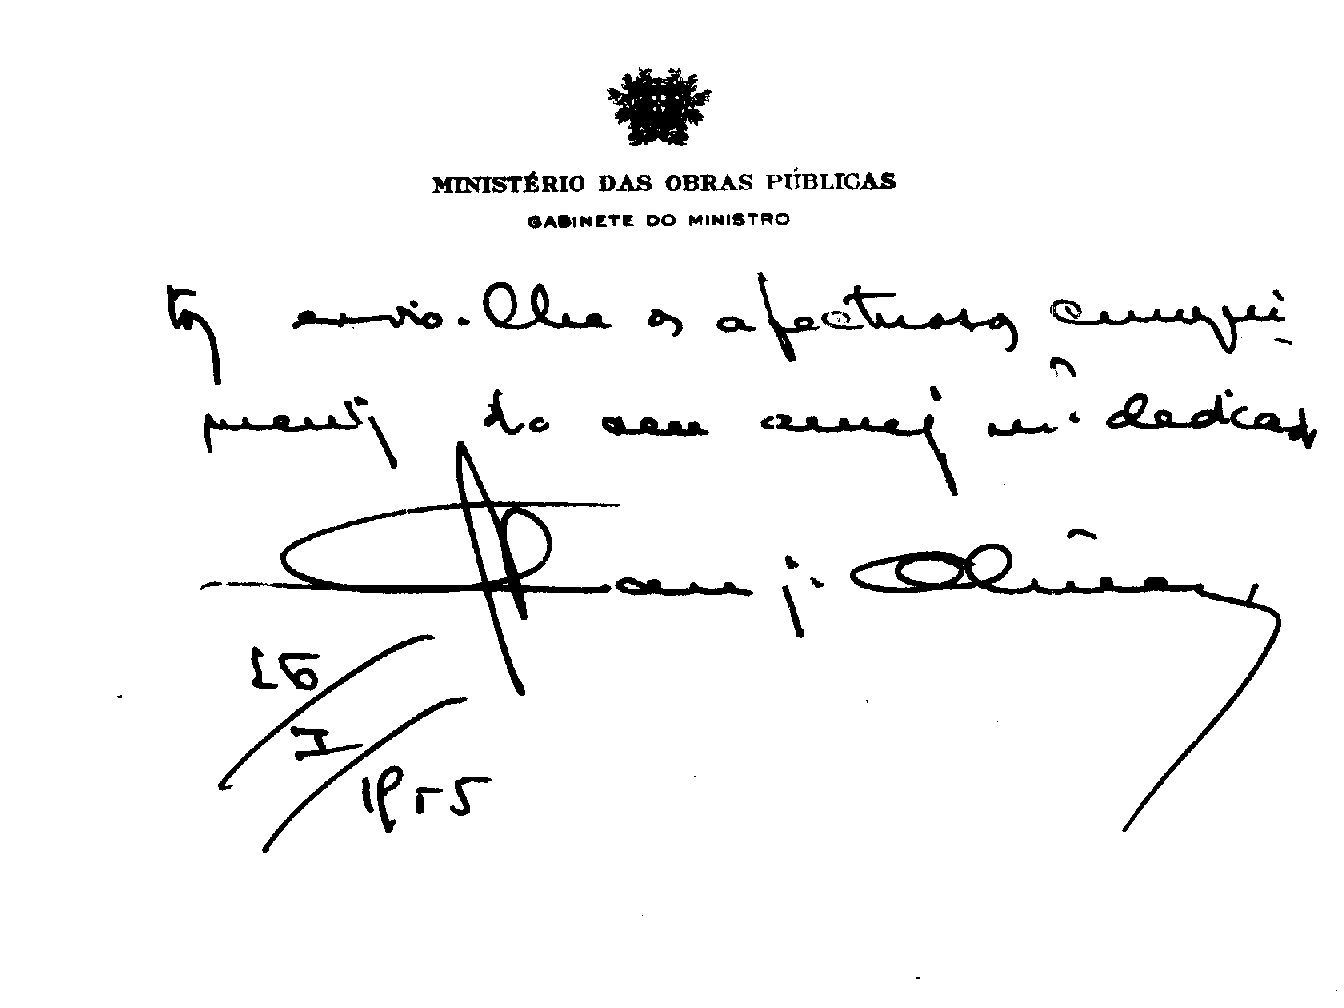 MINISTÉRIO DAS OBRAS PÚBLICAS
GABINETE DO MINISTRO
tos envio-lhe os afectuosos cumpri
mentos do seu amigo mº dedicado
16
I
1955